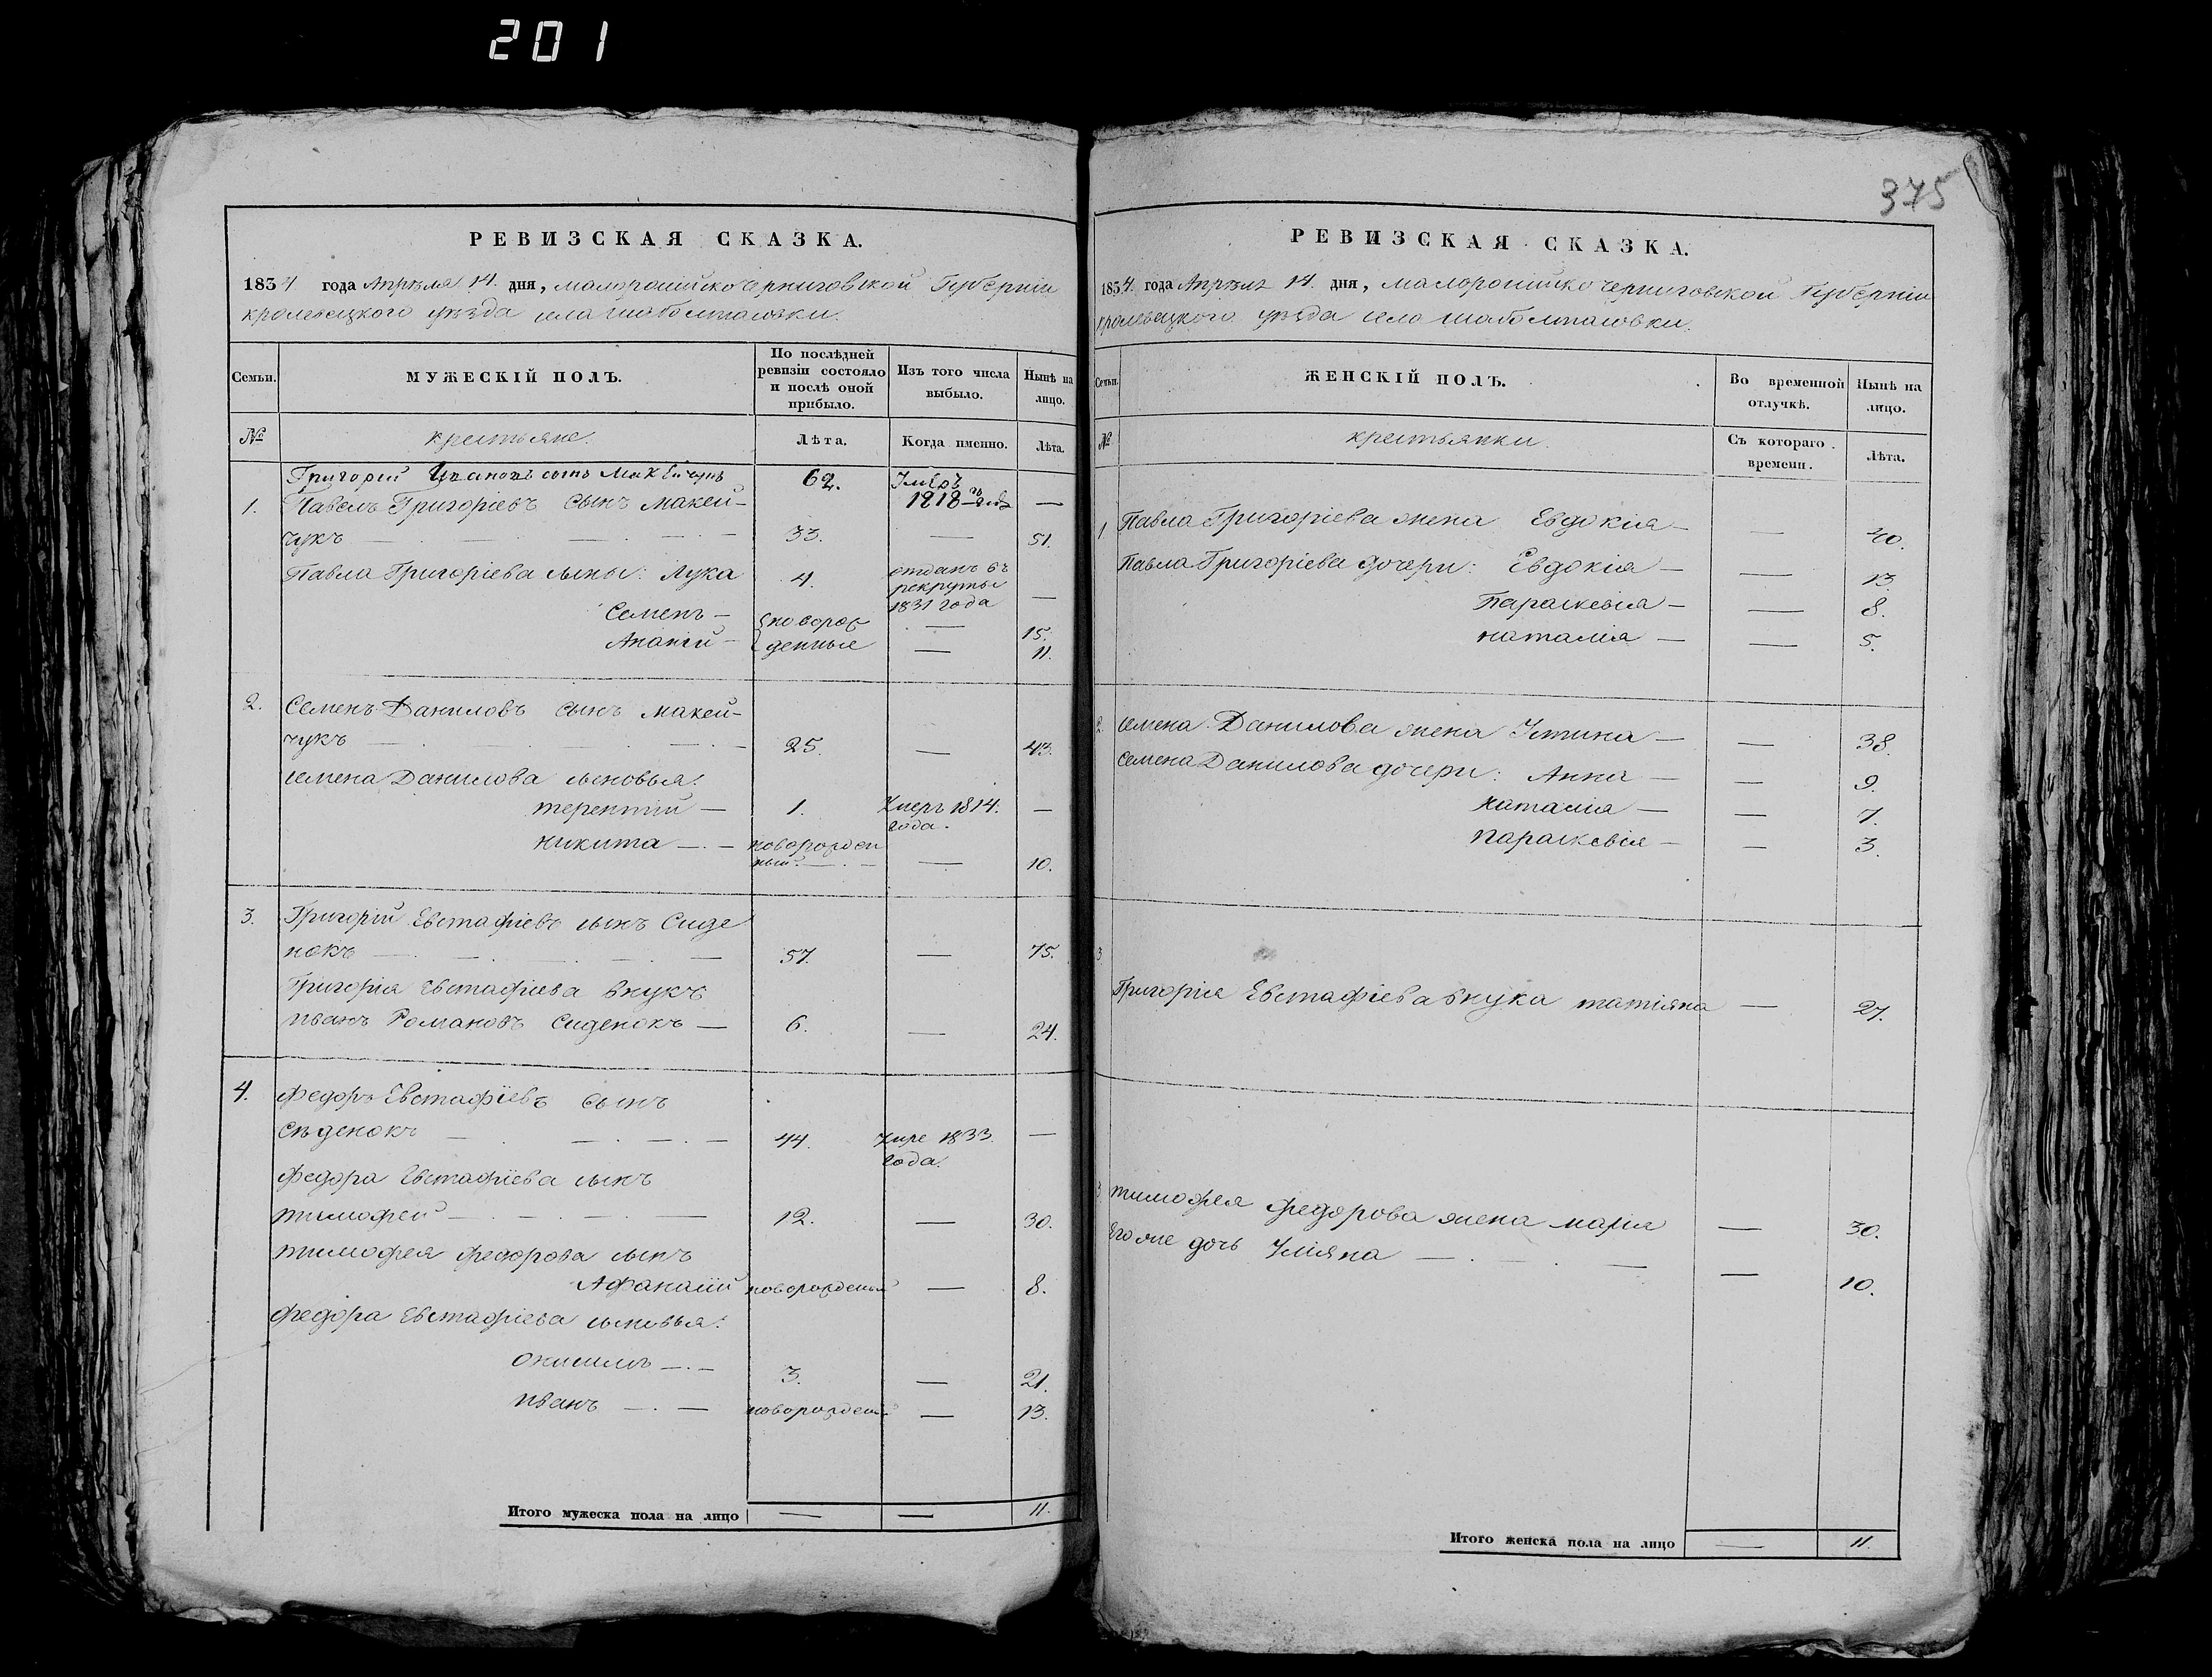 201
РЕВИЗСКАЯ СКАЗКА.
1834 года Апреля 14. дня, малоросійско черниговской Губерніи
кролевецкого уезда села шаболтасовки.
Семьи.
МУЖЕСКІЙ ПОЛЪ.
По послѣдней ревизіи состояло и послѣ оной прибыло.
Изъ того числа выбыло.
Нынѣ на лицо.
№
крестьяне.
Лѣта.
Когда именно.
Лѣта.
Григорий Ивановъ сынъ Макейчукъ 62. Умеръ
1818 —
1. Павелъ Григоріевъ сынъ макей-
чукъ — 33. — 51.
Павла Григоріева сыны: Лука 4. отданъ въ рекруты 1831 года —
Семенъ — новорож — 15.
Ананій — денные — 11.
2. Семенъ Даниловъ сынъ макей-
чукъ — 25. — 43.
семена Данилова сыновья:
терентій — 1. Умеръ 1814. года. —
никита — новорожден
ный — 10.
3. Григорій Евстафіевъ сынъ Сиде
нокъ — 57. — 75.
Григорія Евстафіева внукъ
иванъ Романовъ Сиденокъ — 6. — 24.
4. федоръ Евстафіевъ сынъ
Сиденокъ — 44. Умре 1833. года. —
федора Евстафіева сынъ
тимофей — 12. — 30.
тимофея федорова сынъ
Афанасій новорожденый — 8.
федора Евстафіева сыновья:
онисимъ — 3. — 21.
иванъ — новорожденый — 13.
Итого мужеска пола на лицо — — 11.
375
РЕВИЗСКАЯ СКАЗКА.
1834. года Апреля 14. дня, малоросійско черниговской Губерніи
кролевецкого уезда село шаболтасовки.
Семьи.
ЖЕНСКІЙ ПОЛЪ.
Во временной отлучкѣ.
Нынѣ на лицо.
№
крестьянки.
Съ котораго времени.
Лѣта.
1 Павла Григоріева жена Евдокія — — 40.
Павла Григоріева дочери: Евдокія — — 13.
Параскевія — — 8.
наталія — — 5.
2. семена Данилова жена Устина — — 38.
семена Данилова дочери: Анна — — 9.
наталія — — 7.
параскевія — — 3.
3.
Григорія Евстафіева внука татіяна — 27.
3. тимофея федорова жена марія — 30.
Его же дочь Уліяна — — 10.
Итого женска пола на лицо — 11.